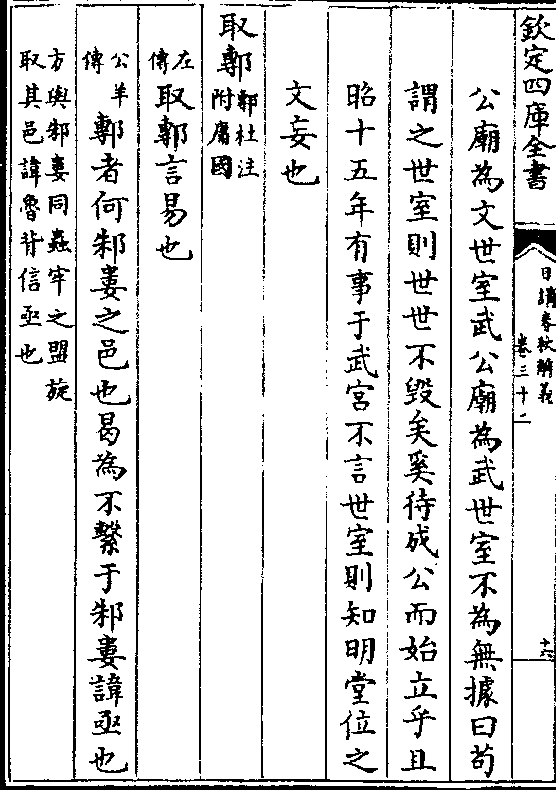 欽定四庫全書
日講春秋解義
卷三十二
十六
公廟為文世室武公廟為武世室不為無據曰茍
謂之世室則世世不毀矣奚待成公而始立乎且
昭十五年有事于武宮不言世室則知明堂位之
文妄也
取鄟鄟杜注
附庸國
左
傳取鄟言易也
公羊
傳鄟者何邾婁之邑也曷為不繫于邾婁諱亟也
方與邾婁同蟲牢之盟旋
取其邑諱魯背信亟也